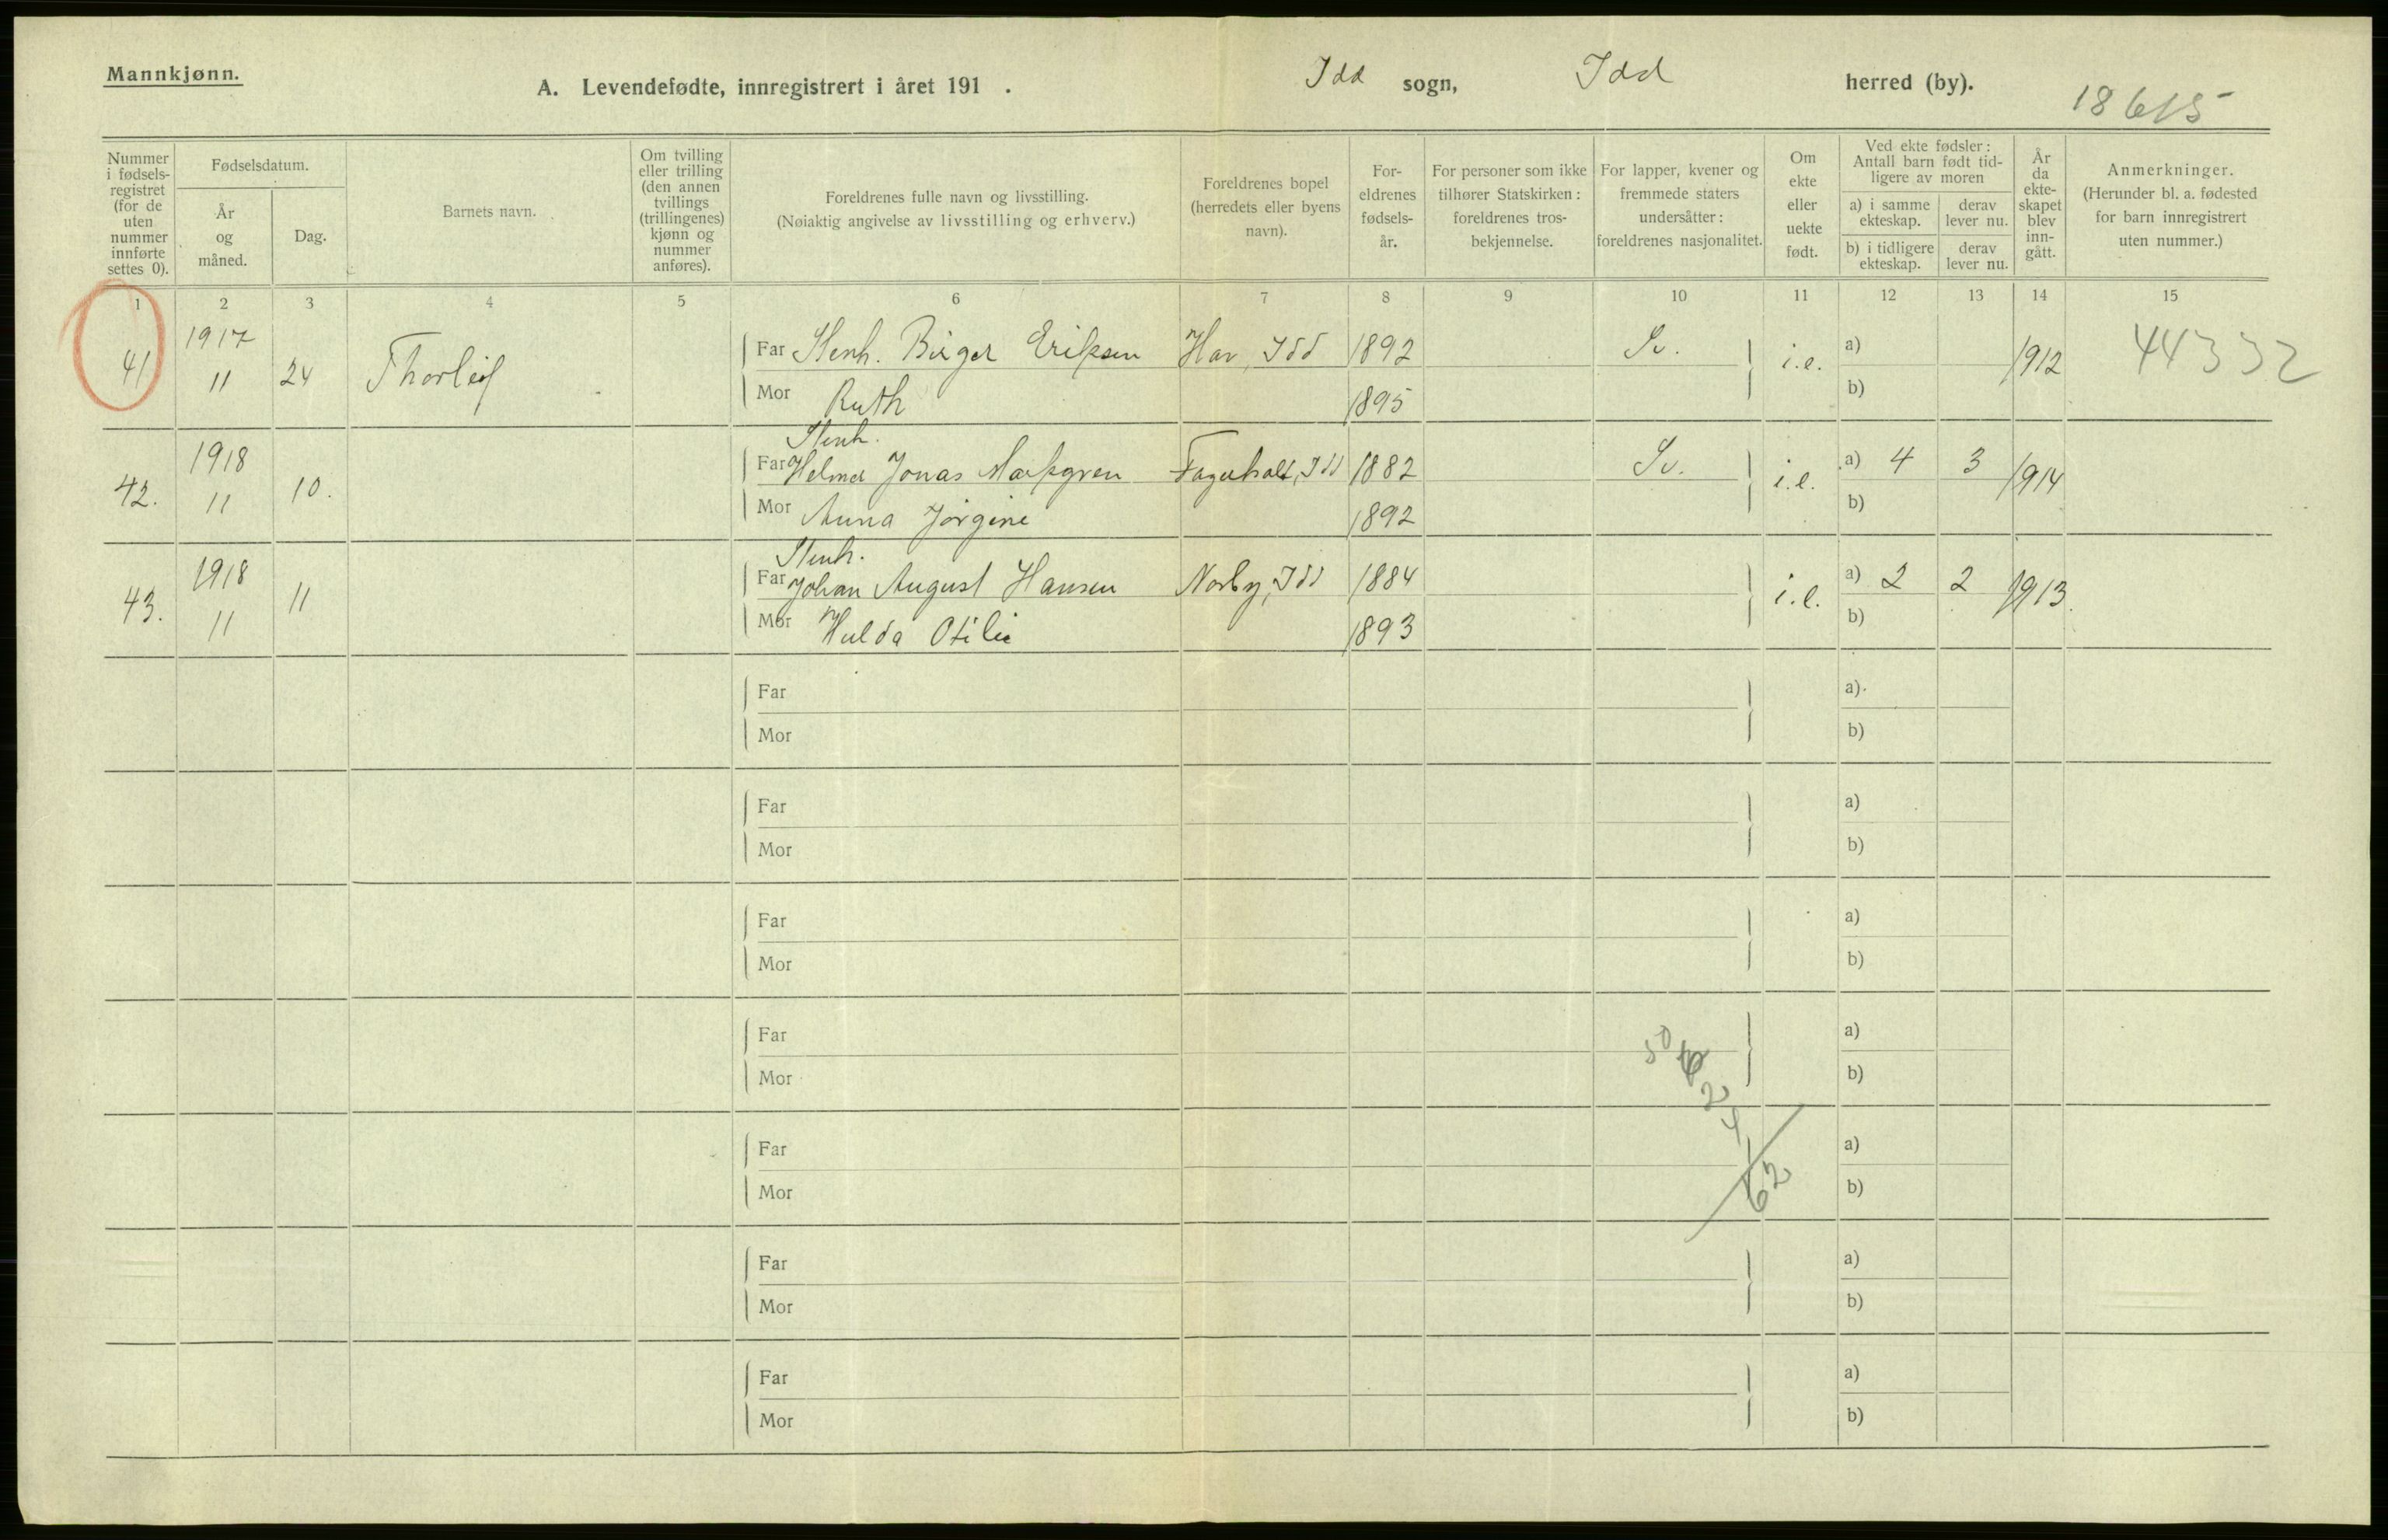 Mannkjønn.
A. Levendefødte, innregistrert i året 191 .
Idd sogn, Idd herred (by).
18615
Nummer i fødselsregistret (for de uten nummer innførte settes 0).
Fødselsdatum.
År og måned.
Dag.
Barnets navn.
Om tvilling eller trilling (den annen tvillings (trillingenes) kjønn og nummer anføres).
Foreldrenes fulle navn og livsstilling.
(Nøiaktig angivelse av livsstilling og erhverv.)
Foreldrenes bopel (herredets eller byens navn).
Foreldrenes fødselsår.
For personer som ikke tilhører Statskirken: foreldrenes trosbekjennelse.
For lapper, kvener og fremmede staters undersåtter: foreldrenes nasjonalitet.
Om ekte eller uekte født.
Ved ekte fødsler: Antall barn født tidligere av moren
a) i samme ekteskap.
derav lever nu.
b) i tidligere ekteskap.
derav lever nu.
År da ekteskapet blev inngått.
Anmerkninger.
(Herunder bl. a. fødested for barn innregistrert uten nummer.)
1 2 3 4 5 6 7 8 9 10 11 12 13 14 15
41 1917 11 24 Thorleif Far Stenh. Birger Eriksen Hov, Idd 1892 Sv. i.e. a) 1912 44332
Mor Ruth 1895 b)
Stenh.
42. 1918 11 10. Far Helmer Jonas Markgren Fagerholt, Idd 1882 Sv. i.e. a) 4 3 1914
Mor Anna Jørgine 1892 b)
Stenh.
43. 1918 11 11 Far Johan August Hansen Norby, Idd 1884 i.e. a) 2 2 1913.
Mor Hulda Otilie 1893 b)
Far a)
Mor b)
Far a)
Mor b)
Far a)
Mor b)
Far a)
50
6
Mor b)
2
4
Far a)
62
Mor b)
Far a)
Mor b)
Far a)
Mor b)